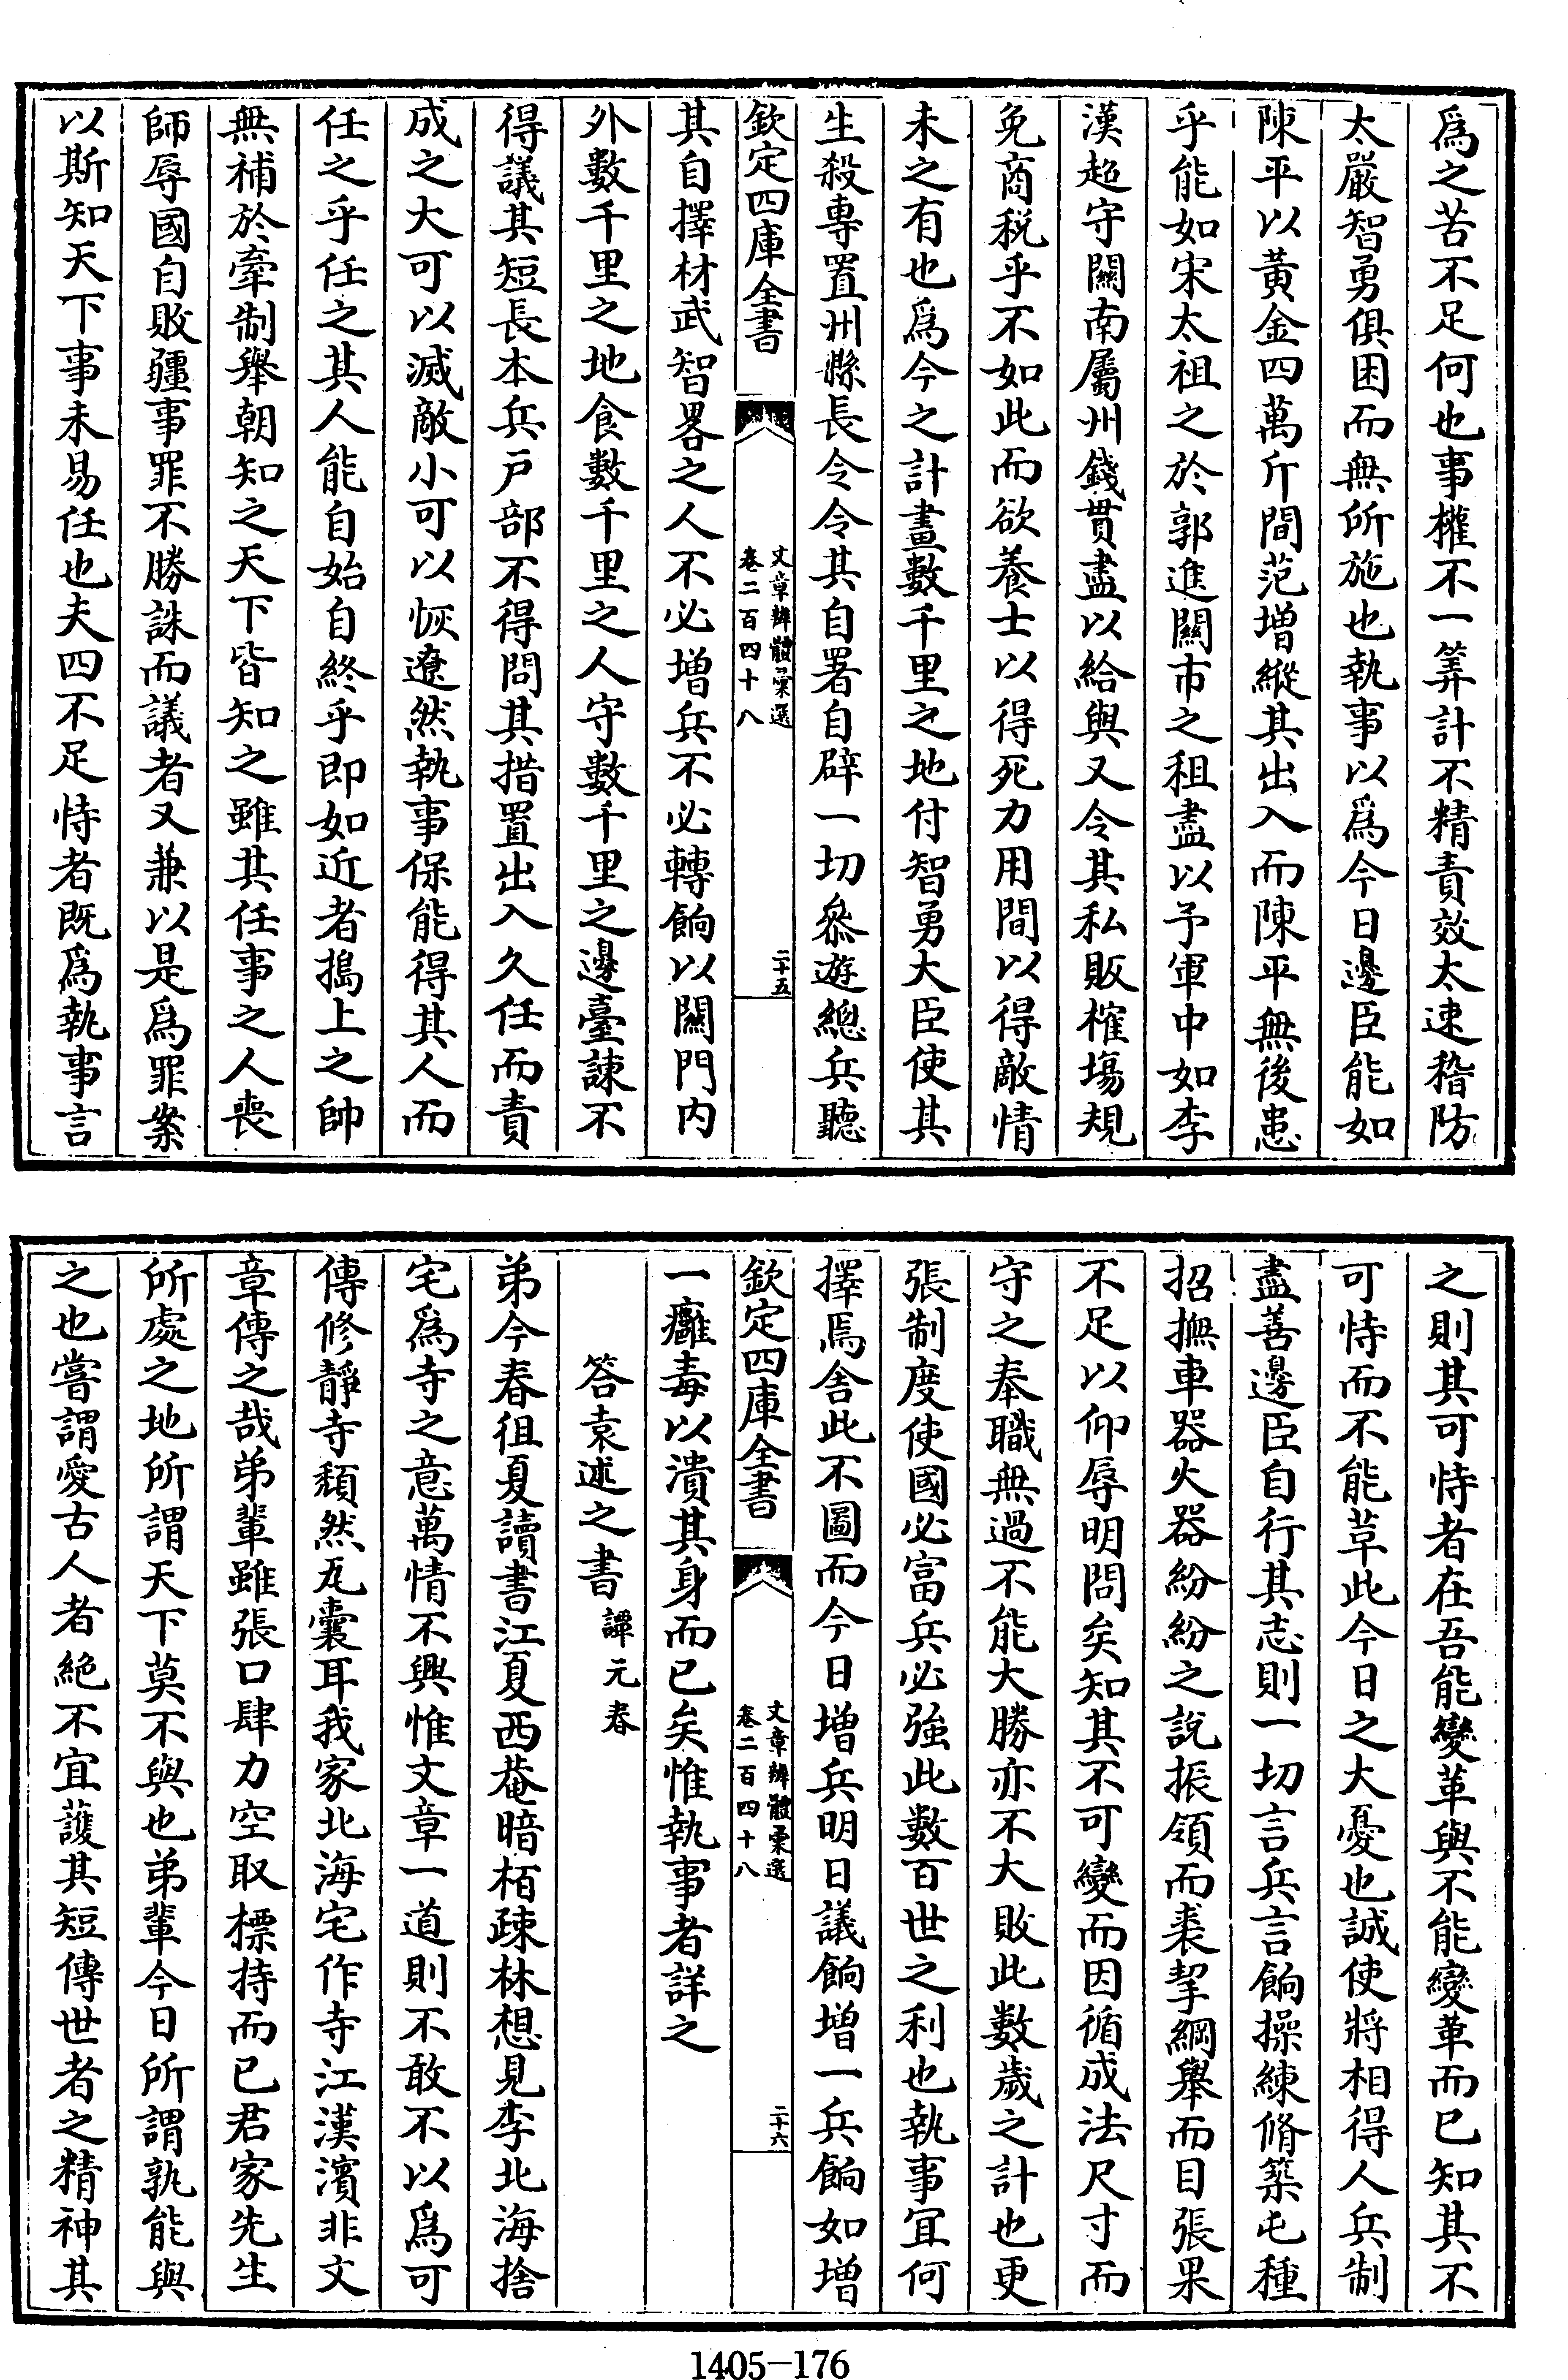 爲之苦不足何也事權不一筭計不精責效太速稽防
太嚴智勇俱困而無所施也執事以爲今日邊臣能如
陳平以黃金四萬斤間范增縱其出入而陳平無後患
乎能如宋太祖之於郭進關市之租盡以予軍中如李
漢超守關南屬州錢貫盡以給與又令其私販榷塲規
免商税乎不如此而欲養士以得死力用間以得敵情
未之有也爲今之計畫數千里之地付智勇大臣使其
生殺專置州縣長令令其自署自辟一切叅遊總兵聽
欽定四庫全書
文章辨體彚選
卷二百四十八
二十五
其自擇材武智畧之人不必增兵不必轉餉以關門内
外數千里之地食數千里之人守數千里之邊臺諫不
得議其短長本兵户部不得問其措置出入久任而責
成之大可以滅敵小可以恢遼然執事保能得其人而
任之乎任之其人能自始自終乎即如近者搗上之帥
無補於牽制舉朝知之天下皆知之雖其任事之人喪
師辱國自敗疆事罪不勝誅而議者又兼以是爲罪案
以斯知天下事未易任也夫四不足恃者既爲執事言
之則其可恃者在吾能變革與不能變革而已知其不
可恃而不能草此今日之大憂也誠使將相得人兵制
盡善邊臣自行其志則一切言兵言餉操練脩築屯種
招撫車器火器紛紛之說振領而裘挈綱舉而目張果
不足以仰辱明問矣知其不可變而因循成法尺寸而
守之奉職無過不能大勝亦不大敗此數歲之計也更
張制度使國必富兵必強此數百世之利也執事冝何
擇焉舍此不圖而今日增兵明日議餉增一兵餉如增
欽定四庫全書
文章辨體彚選
卷二百四十八
二十六
一癰毒以潰其身而已矣惟執事者詳之
答袁述之書 譚元春
弟今春徂夏讀書江夏西菴暗栢疎林想見李北海捨
宅爲寺之意萬情不興惟文章一道則不敢不以爲可
傳修靜寺頹然瓦囊耳我家北海宅作寺江漢濱非文
章傳之哉弟輩雖張口肆力空取標持而已君家先生
所處之地所謂天下莫不與也弟輩今日所謂孰能與
之也嘗謂愛古人者絶不宜護其短傳世者之精神其
1405-176